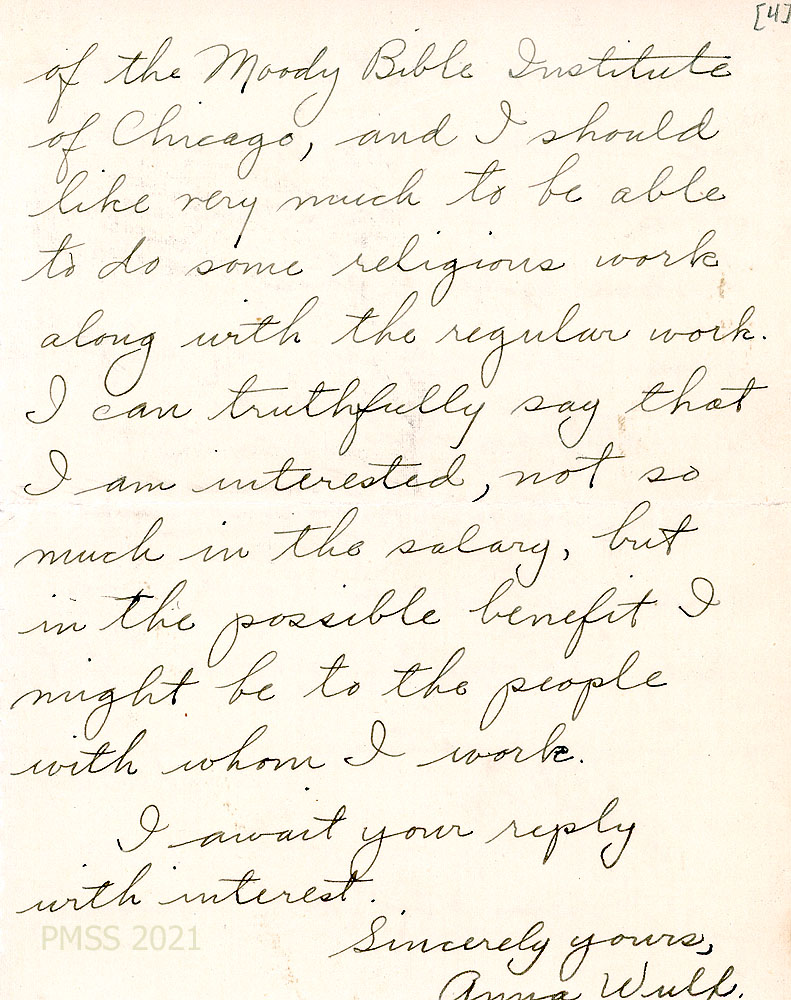 [4]
of the Moody Bible Institute
of Chicago, and I should
like very much to be able
to do some religious work
along with the regular work.
I can truthfully say that
I am interested, not so
much in the salary, but
in the possible benefit I
might be to the people
with whom I work.
I await your reply
with interest.
PMSS 2021
Sincerely yours,
Anna Wulf.